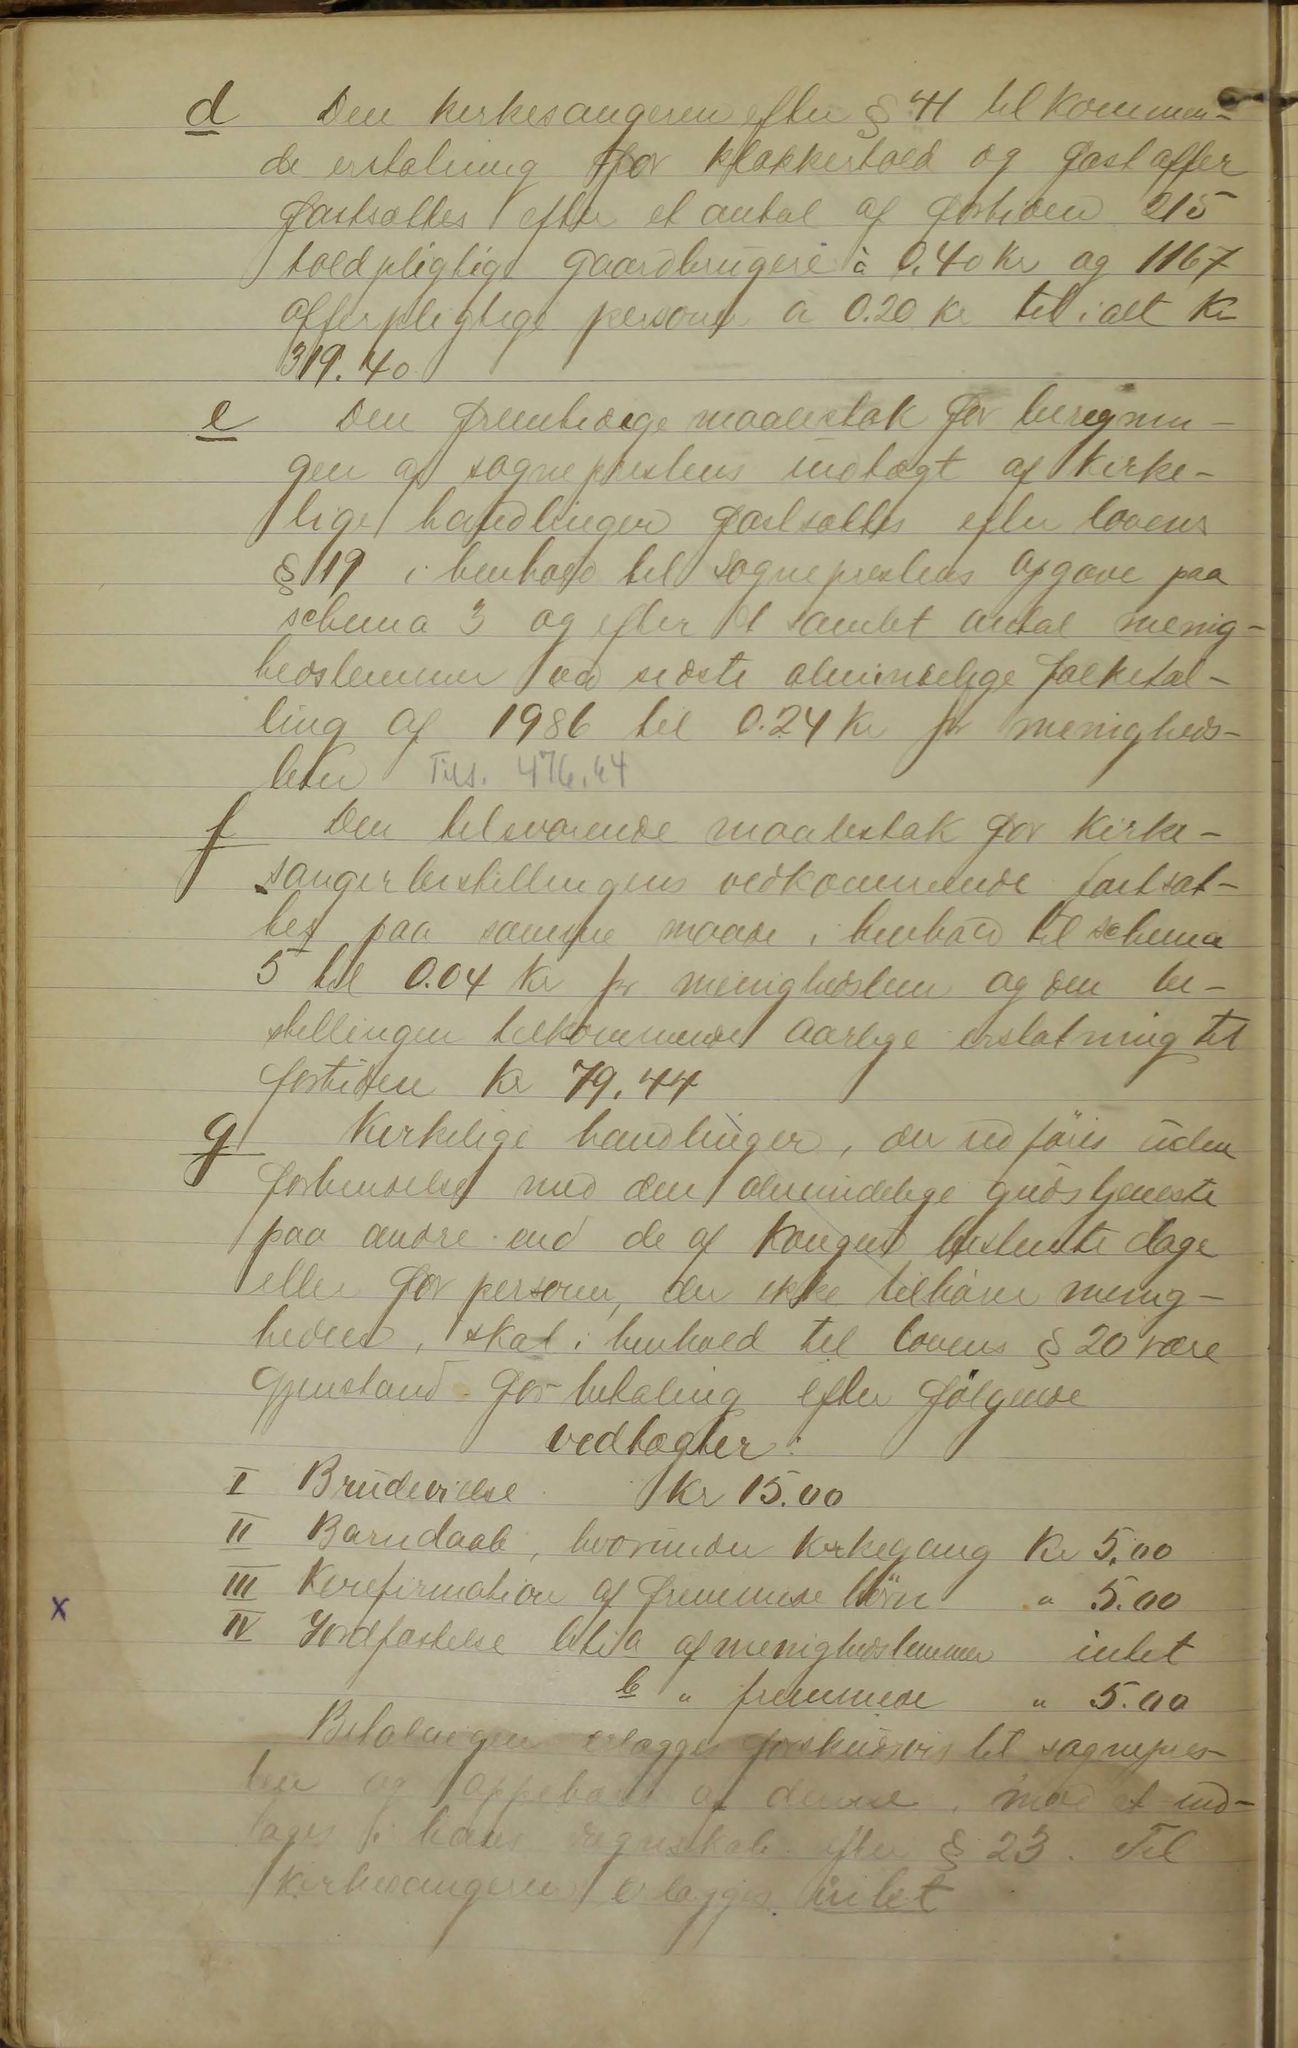 d Den kirkesangeren efter § 41 tilkommen-
de erstatning for klokkertold og fastoffer
fastsættes efter et antal af fortiden 215
toldpligtige gaardbrugere à 0.40 kr og 1167
offerpligtige personer à 0.20 kr til ialt kr
319.40
e Den fremtidige maalestok for beregnin-
gen af sogneprestens indtægt af kirke-
lige handlinger fastsættes efter lovens
§ 19 i henhold til sogneprestens opgave paa
schema 3 og efter et samlet antal menig-
hedslemmer ved sidste almindelige folketæl-
ling af 1986 til 0.24 kr pr menigheds-
lem Tils. 476.64
f Den tilsvarende maalestok for kirke-
sangerbestillingens vedkommende fastsæt-
tes paa samme maade i henhold til schema
5 til 0.04 kr pr menighedslem og den be-
stillingen tilkommende aarlige erstatning til
fortiden kr 79.44
g Kirkelige handlinger, der udføres uden
forbindelse med den almindelige gudstjeneste
paa andre end de af kongen bestemte dage
eller for personer, der ikke tilhører menig-
heden, skal i henhold til lovens § 20 være
gjenstand for betaling efter følgende
vedtægter:
I Brudevielse kr 15.00
II Barnedaab, hvorunder kirkegang kr 5.00
x III Konfirmation af fremmede børn " 5.00
IV Jordfæstelse a af menighedslemmer intet
b " fremmede " 5.00
Betalingen erlægges forskudsvis til sognepres-
ten og oppebæres af denne, mod at ind-
tages i hans regnskab efter § 23. Til
kirkesangeren erlægges intet